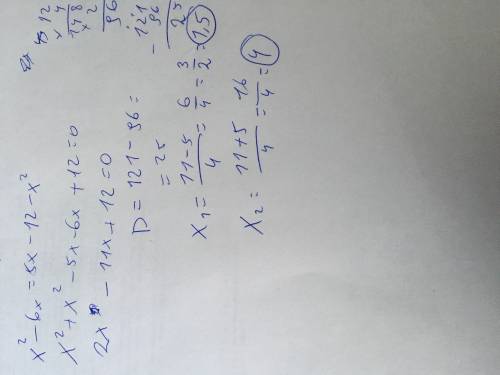 x² - 6x = 5x - 12 - x²
x² + x² - 5x - 6x + 12 = 0
2x² - 11x + 12 = 0
D = 121 - 96 =
= 25
x₁ = (11-5)/4 = 6/4 = 3/2 = 1,5
x₂ = (11+5)/4 = 16/4 = 4
12
× 4
48
× 2
96
- 121
96
25